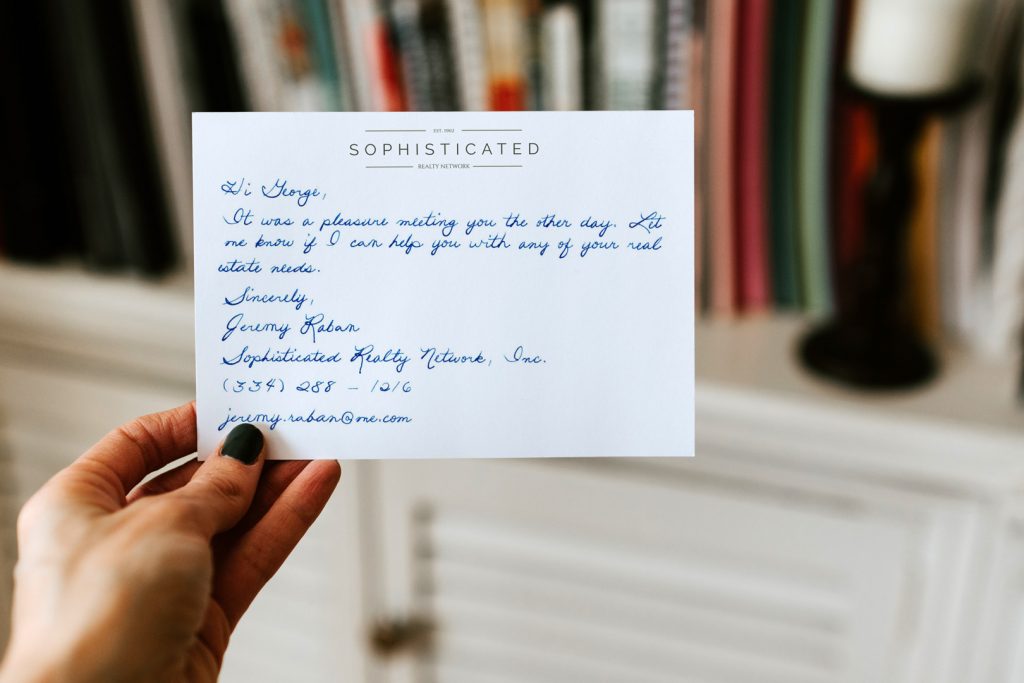 EST. 1902
SOPHISTICATED
REALTY NETWORK
Hi George,
It was a pleasure meeting you the other day. Let
me know if I can help you with any of your real
estate needs.
Sincerely,
Jeremy Raban
Sophisticated Realty Network, Inc.
(334) 288 - 1216
jeremy.raban@me.com